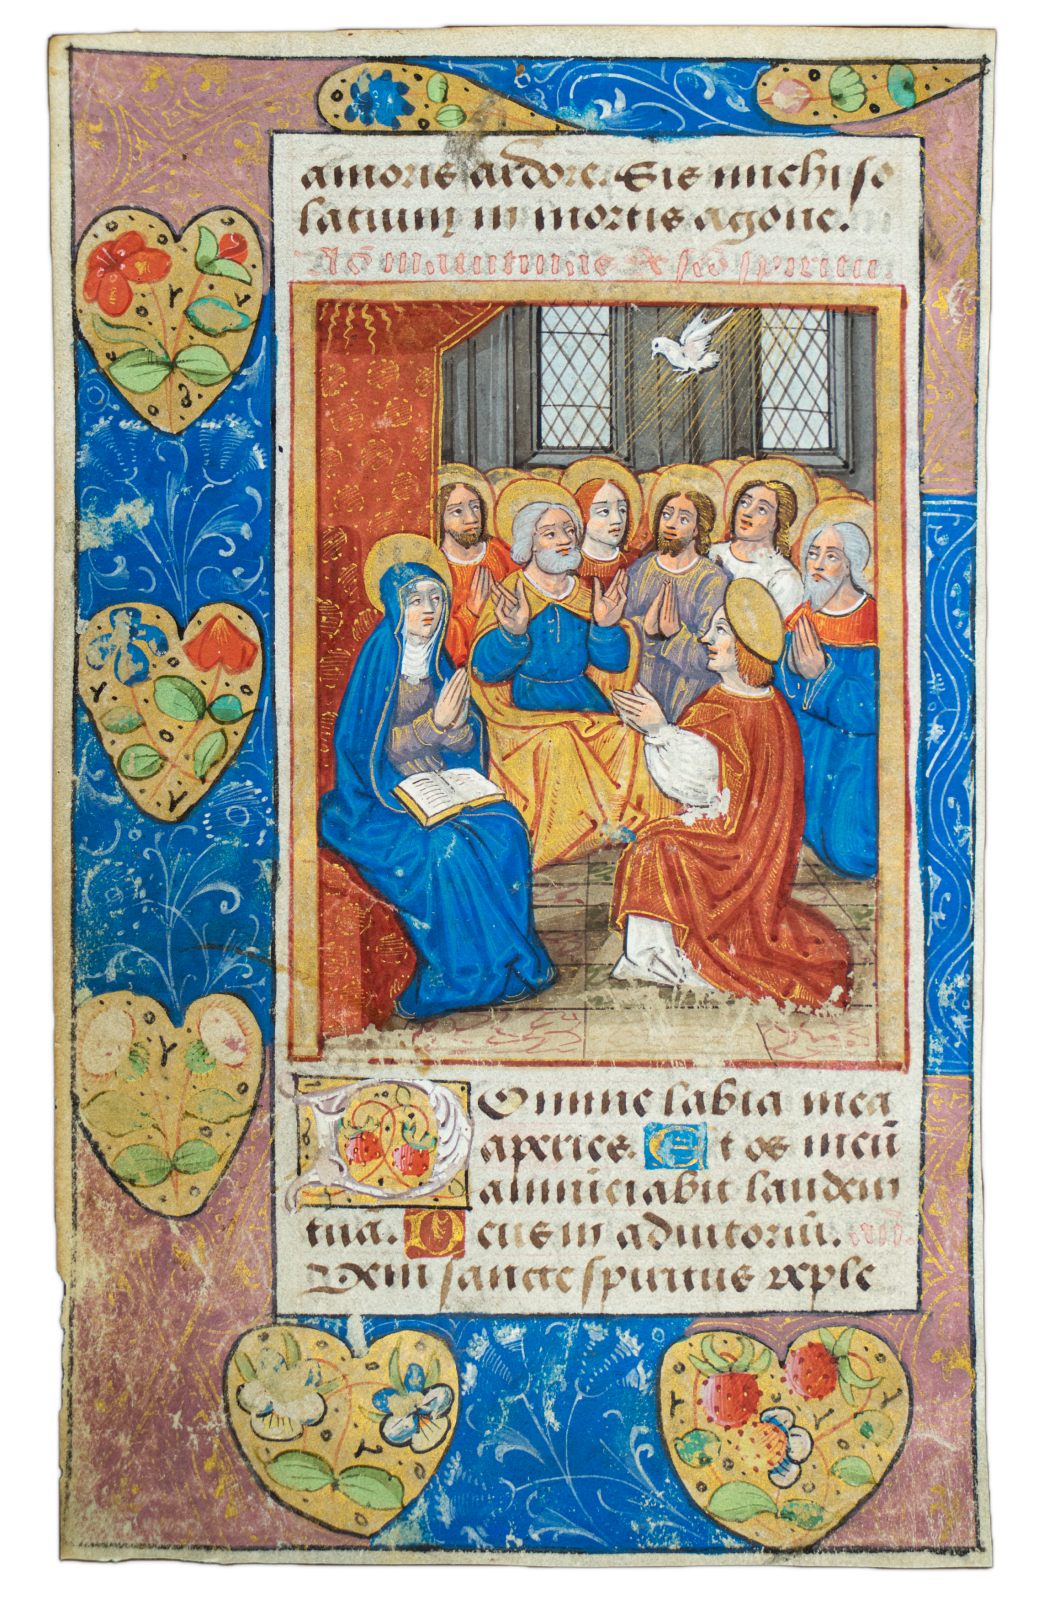 amoris ardore. Sis michi so
latium in mortis agone.
Ad matutinas de scō spiritu
Domine labia mea
aperies. Et os meū
annūciabit laudem
tuā. Deus in adiutoriū. añ.
Veni sancte spiritus reple